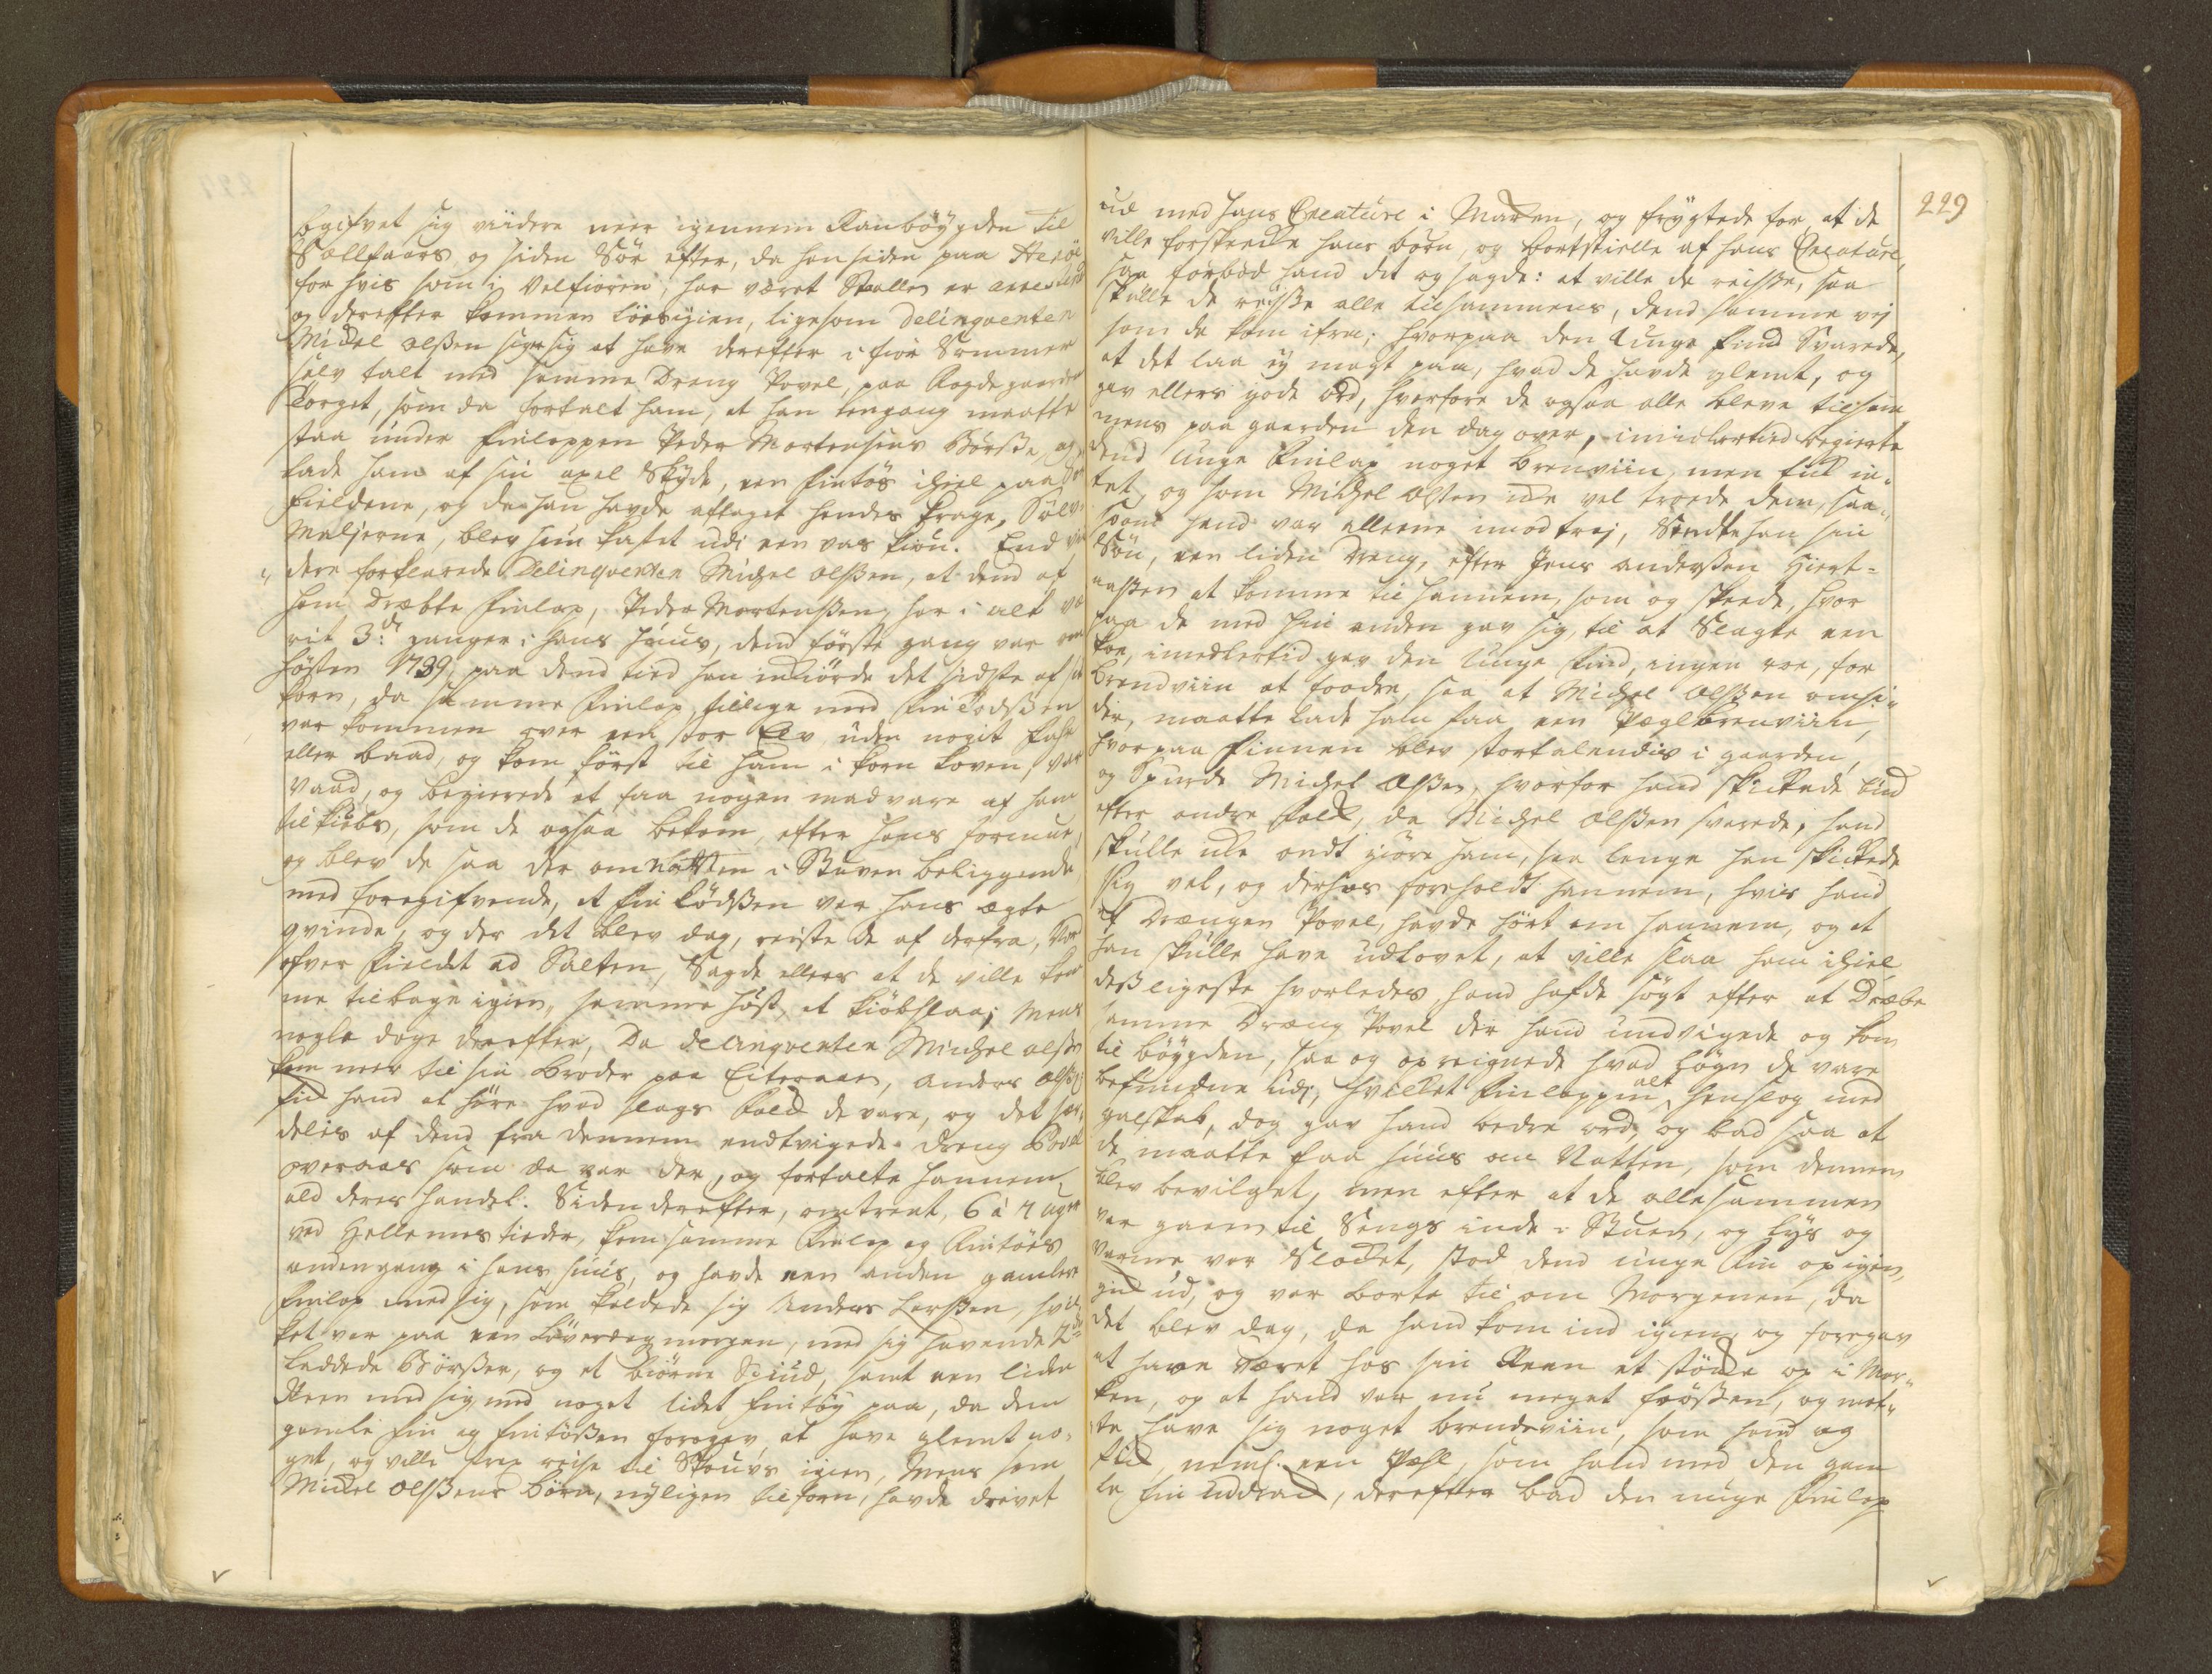 begifvet sig viidere neer igennem Ranböÿgden til
Sollfaars og siden Sör efter, da han siden paa Heröe
for hvis som i Velfioren, har været Stallen er arrestered
og derefter kommen löes igien, ligesom Delinqventen
Michel Olßen siger sig at have derefter i fior Sommer
selv talt med samme Dreng Povel, paa Rogde gaarden
Torget, som da fortalt ham, at han engang maatte
staa under Finlappen Peder Mortensens Börße, og
lade ham af sin axel Skÿde, een Fintös ihiel paa
Fieldene, og da han havde aftaget hendes Krage, Sölv
Maljerne, blev hun kastet udi een vas kiön. End vi
dere forklarede Delinqventen Michel Olßen, at dend af
ham dræbte Finlap, Peder Mortenßen har i alt væ
rit 3de ganger i hans huus, dend förste gang var om
hösten 1739, paa dend tid han indkiörde det sidste af sit
korn, da samme Finlap, tillige med Fin Tödßen
var kommen over een stor Elv uden nogit fahr
eller baad, og kom först til ham i Korn Loven, var
vaad, og begierede at faa nogen madvare af ham
til kiöbs, som de ogsaa bekom, efter hans formue,
og blev de saa der om Natten i Stuven beliggende,
med foregifvende, at Fin Tödßen var hans ægte
qvinde, og der det blev dag, reiste de af derfra, Nor
ofver Fieldet ad Salten, Sagde ellers at de ville kom
me tilbage igien, samme höst, at kiöbslaa; Men
nogle dage derefter, Da Delinqventen Michel Olßen
kom neer til sin Broder paa Eiteraaen, Anders Olßen
fik hand at höre hvad slags Folck de vare, og det sær
deles af dend fra dennem undvigede Dreng Povel
Overaaes som da var der, og fortalte hannem
ald deres handel. Siden derefter, omtrent, 6 á 7 uger
ved Hellemes tieder, kom samme Finlap og Fintöes
anden gang i hans huus, og havde een anden gamler
Finlap med sig, som kaldede sig Anders Larßen, hvil
ket var paa een Löverdag morgen, med sig havende 2de
laddede Börßer, og et biörne Spiud, samt een liden
Reen med sig med noget lidet Fintöÿ paa, da den
gamle Fin og Fintößen foregav, at have glemt no-
get, og ville strax reise til Skouvs igien, Mens som
Michel Olßens Börn, nÿligen tilforn, havde drevet
229
ud med hans Creature i Marken, og frÿgtede for at de
ville forskrecke hans börn, og bortstielle af hans Creature,
saa forböd hand det og sagde: at ville de reiße, saa
skulle de reiße alle tilsammens, dend samme vej
som de kom ifra; Hvorpaa den Unge Find Svarede,
at det laa eÿ magt paa, hvad de havde glemt, og
gav ellers gode Ord, hverfore de ogsaa alle bleve tilsam
mens paa gaarden den dag over, imidlertid begierte
dend Unge Finlap noget Brenviin, men fik in-
tet, og som Michel Olßen icke vel troede dem, saa-
som hand var alleene imod trej, Sendte han sin
Sön, een liden Dreng, efter Jens Anderßen Hiert-
aaßen at komme til hannem, som og skeede, hvor
paa de med hin anden gav sig, til at Slagte een
koe, imedlertid gav den Unge Find, ingen roe, for
Brendviin at fordre, saa at Michel Olßen omsi-
der, maatte lade ham faa een Pægl brenviin,
hvorpaa Finnen blev stortalendis i gaarden,
og Spurde Michel Olßen, hvorfor hand skickede bud
efter andre Folck, da Michel Olßen svarede, hand
skulle icke ondt giöre ham, saa lenge han skickede
sig vel, og derhos foreholdt hannem, hvis hand
af Drængen Povel, havde hört om hannem, og at
han skulle have udlovet, at ville slaa ham ihiel
desligeste hvorledes hand hafde sögt efter at Dræbe
samme Dreng Povel der hand undvigede og kom
til böÿgden, saa og opreignede hvad Lögn de vare
befundne udi, hvilket Finlappen alt henslog med
galskab, dog gav hand bedre ord, og bad saa at
de maatte faa huus om Natten, som dennem
blev bevilget, men efter at de allesammen
var gaaen til Sengs inde i Stuen, og lÿs og
varme var Slocket, stod dend unge Fin op igien,
gik ud, og var borte til om Morgenen, da
det blev dag, da hand kom ind igien og foregav
at have været hos sin Reen at stöcke op i Mar-
ken, og at hand var nu meget fröeßen, og mot-
te have sig noget brendeviin, som hand og
fik, neml. een Pæhl, som hand med den gam
le Fin uddrack, derefter bad den unge Finlap